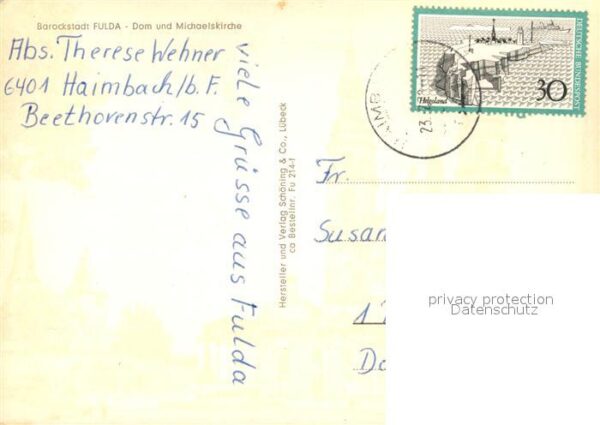 Barockstadt FULDA - Dom und Michaelskirche
Abs. Therese Wehner
6401 Haimbach/b. F.
Beethovenstr. 15
viele Grüsse aus Fulda
Hersteller und Verlag Schöning & Co., Lübeck
ca Bestellnr. Fu 214-1
DEUTSCHE BUNDESPOST
Helgoland
30
23.
Fr.
Susan
1
Do
privacy protection
Datenschutz